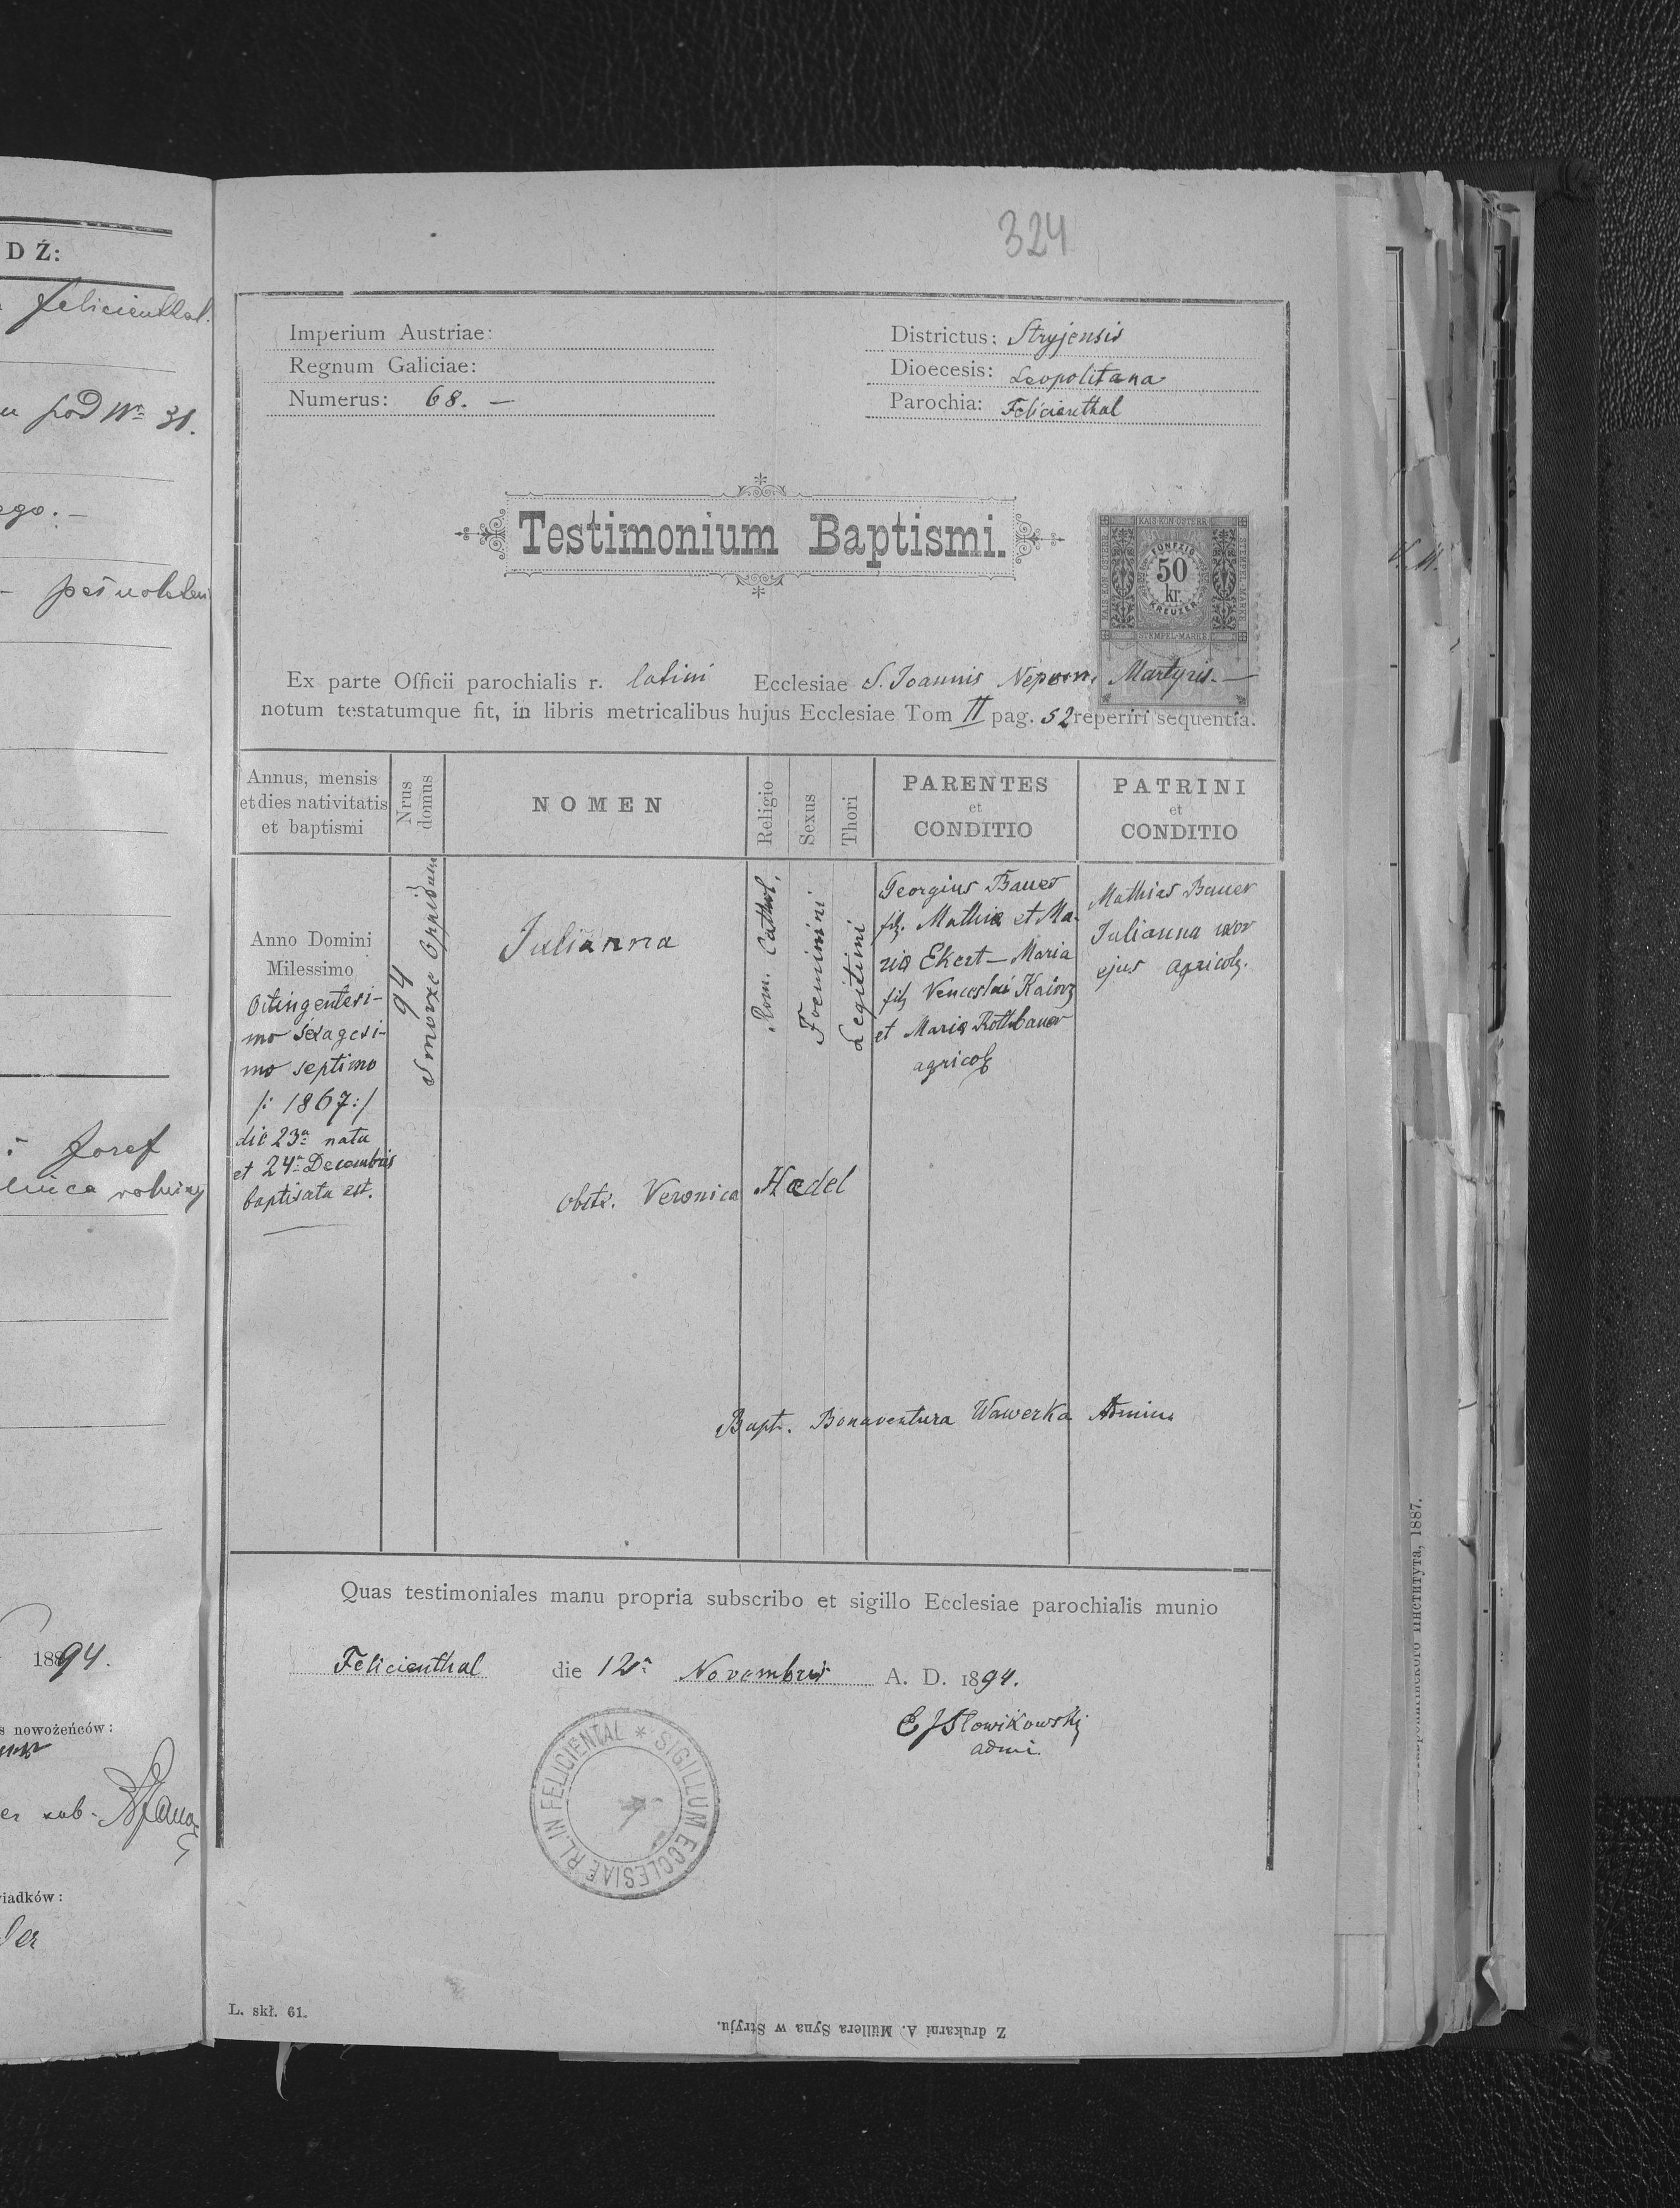 D Ź:
Felicienthal.
pod Nr 31.
ego. –
Josef
1894.
s nowożeńców:
iadków:
324
Imperium Austriae:
Regnum Galiciae:
Numerus: 68. –
Districtus: Stryjensis
Dioecesis: Leopolitana
Parochia: Felicienthal
Testimonium Baptismi.
KAIS. KÖN. ÖSTERR.
FÜNFZIG
50
kr.
KREUZER
STEMPEL-MARKE
Ex parte Officii parochialis r. latini Ecclesiae S. Joannis Nepom. Martyris. –
notum testatumque fit, in libris metricalibus hujus Ecclesiae Tom II pag. 52 reperiri sequentia.
Annus, mensis
et dies nativitatis
et baptismi
Nrus
domus
NOMEN
Religio
Sexus
Thori
PARENTES
et
CONDITIO
PATRINI
et
CONDITIO
Anno Domini
Milessimo
Octingentesi-
mo sexagesi-
mo septimo
/: 1867 :/
die 23a nata
et 24a Decembris
baptisata est.
94
Smorze Oppidum
Julianna
Rom. Cathol.
Foeminini
Legitimi
Georgius Bauer
fil. Mathiæ et Ma-
riæ Ekert – Maria
fil. Venceslai Kainz
et Mariæ Rothbauer
agricolæ
Mathias Bauer
Julianna uxor
ejus agricolæ.
Obste. Veronica Hædel
Bapt. Bonaventura Wawerka Admin.
Quas testimoniales manu propria subscribo et sigillo Ecclesiae parochialis munio
Felicienthal die 12a Novembris A. D. 1894.
EJSłowikowski
admi.
SIGILLUM ECCLESIAE R.L. IN FELICIENTAL *
L. skł. 61.
Z drukarni A. Müllera Syna w Stryju.
института, 1887.